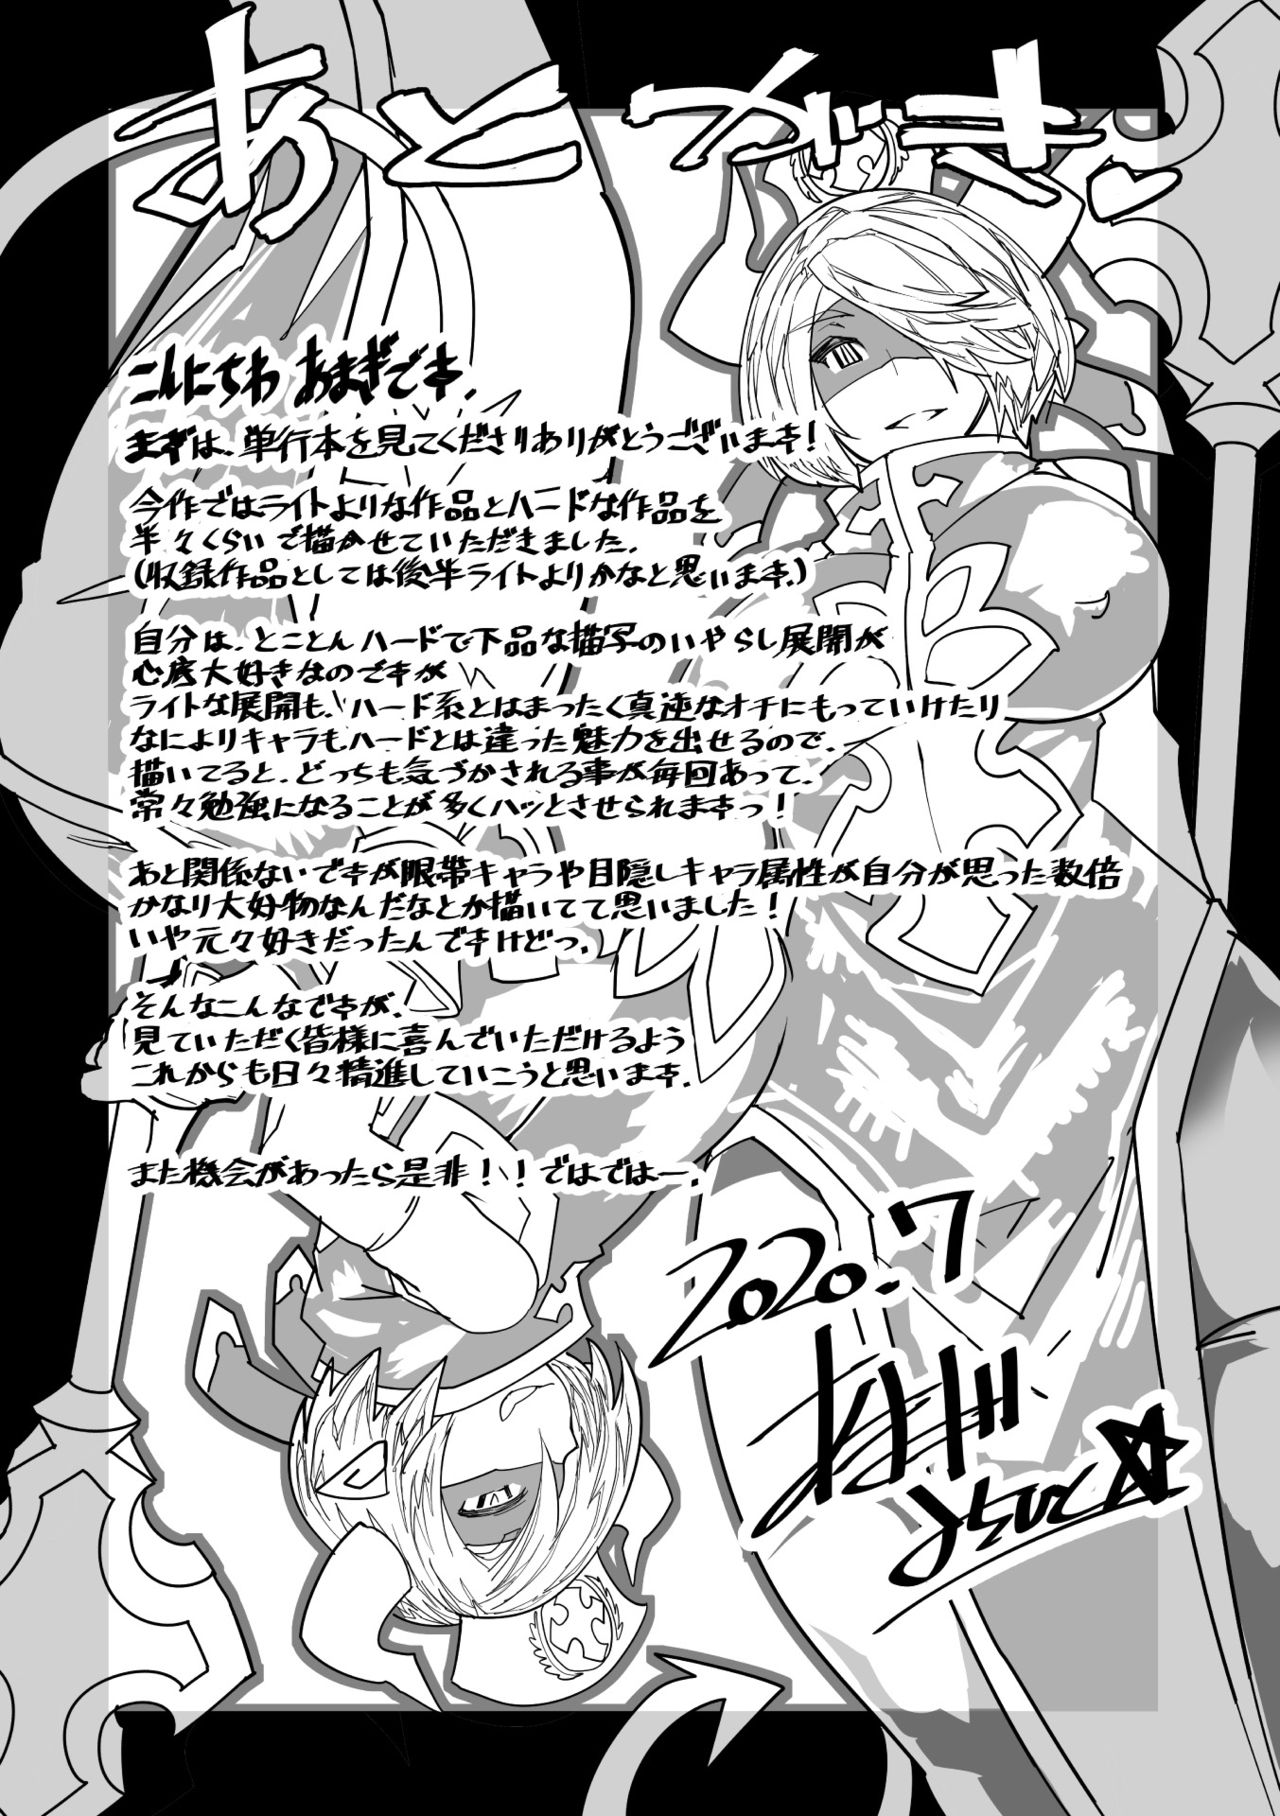 あとがき♡
こんにちわ あまぎです.
まずは、単行本を見てくださりありがとうございます!
今作ではライトよりな作品とハードな作品を
半々くらいで描かせていただきました.
(収録作品としては後半ライトよりかなと思います.)
自分は、とことんハードで下品な描写のいやらし展開が
心底大好きなのですが
ライトな展開も、ハード系とはまったく真逆なオチにもっていけたり
なによりキャラもハードとは違った魅力を出せるので、
描いてると、どっちも気づかされる事が毎回あって、
常々勉強になることが多くハッとさせられますっ!
あと関係ないですが眼帯キャラや目隠しキャラ属性が自分が思った数倍
かなり大好物なんだなとか描いてて思いました!
いや元々好きだったんですけどっ.
そんなこんなですが、
見ていただく皆様に喜んでいただけるよう
これからも日々精進していこうと思います.
また機会があったら是非!!ではではー.
2020.7